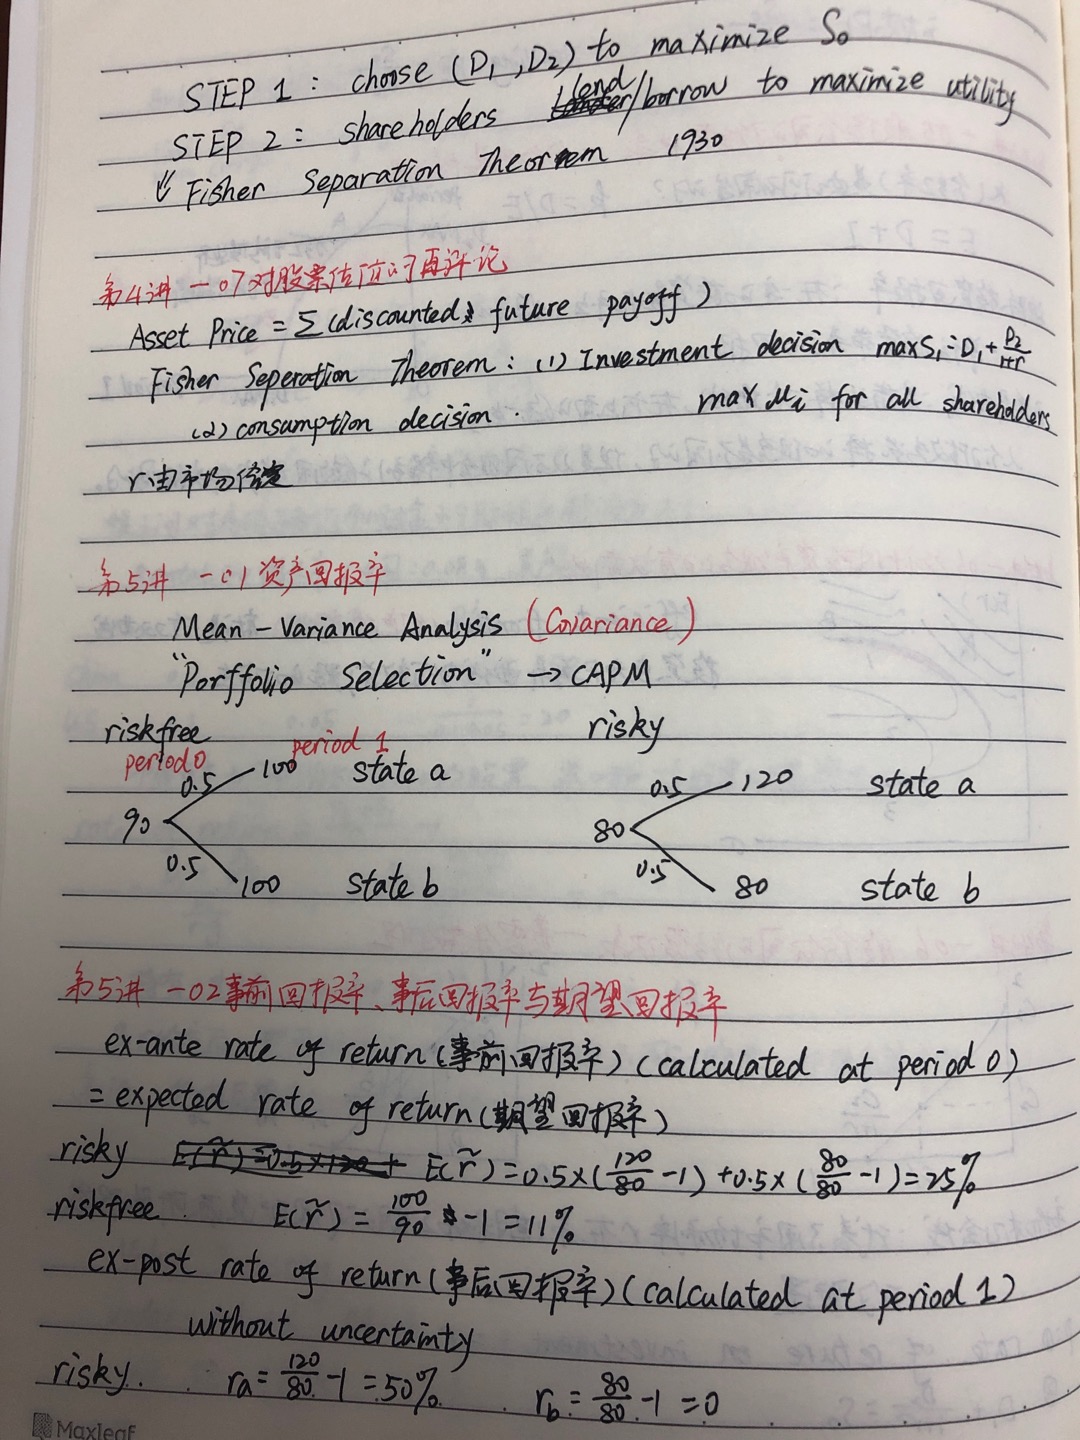 STEP 1 : choose (D₁, D₂) to maximize S₀
STEP 2 : shareholders lend/borrow to maximize utility
⇓ Fisher Separation Theorem 1930
第4讲 -07对股票估值的再评论
Asset Price = Σ(discounted future payoff)
Fisher Seperation Theorem : (1) Investment decision max S₁ = D₁ + D₂/(1+r)
(2) consumption decision. max μᵢ for all shareholders
r由市场给定
第5讲 -01资产回报率
Mean-Variance Analysis (Covariance)
"Portfolio Selection" → CAPM
riskfree risky
period 0 period 1
0.5 100 state a 0.5 120 state a
90 80
0.5 100 state b 0.5 80 state b
第5讲 -02事前回报率、事后回报率与期望回报率
ex-ante rate of return (事前回报率) (calculated at period 0)
= expected rate of return (期望回报率)
risky E(r̃) = 0.5×(120/80 -1) + 0.5×(80/80 -1) = 25%
riskfree E(r̃) = 100/90 -1 = 11%
ex-post rate of return (事后回报率) (calculated at period 1)
without uncertainty
risky. ra = 120/80 -1 = 50% rb = 80/80 -1 = 0
Maxleaf